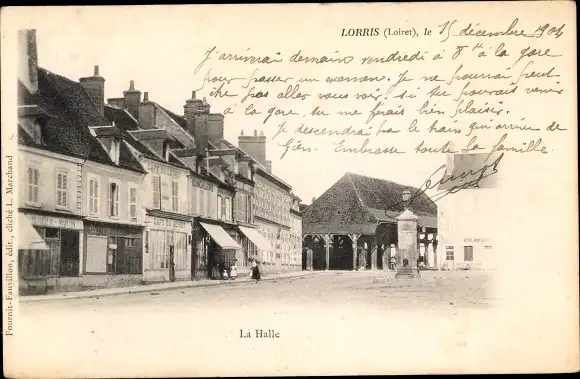 LORRIS (Loiret), le 15 décembre 1904
J'arriverai demain vendredi à 8h à la gare
pour passer un examen. Je ne pourrai peut-
être pas aller vous voir, si tu pouvais venir
à la gare, tu me ferais bien plaisir.
Je descendrai par le train qui arrive de
Gien. Embrasse toute la famille.
CAFÉ DU
La Halle
Fournit-Fautillon, édit., cliché L. Marchand